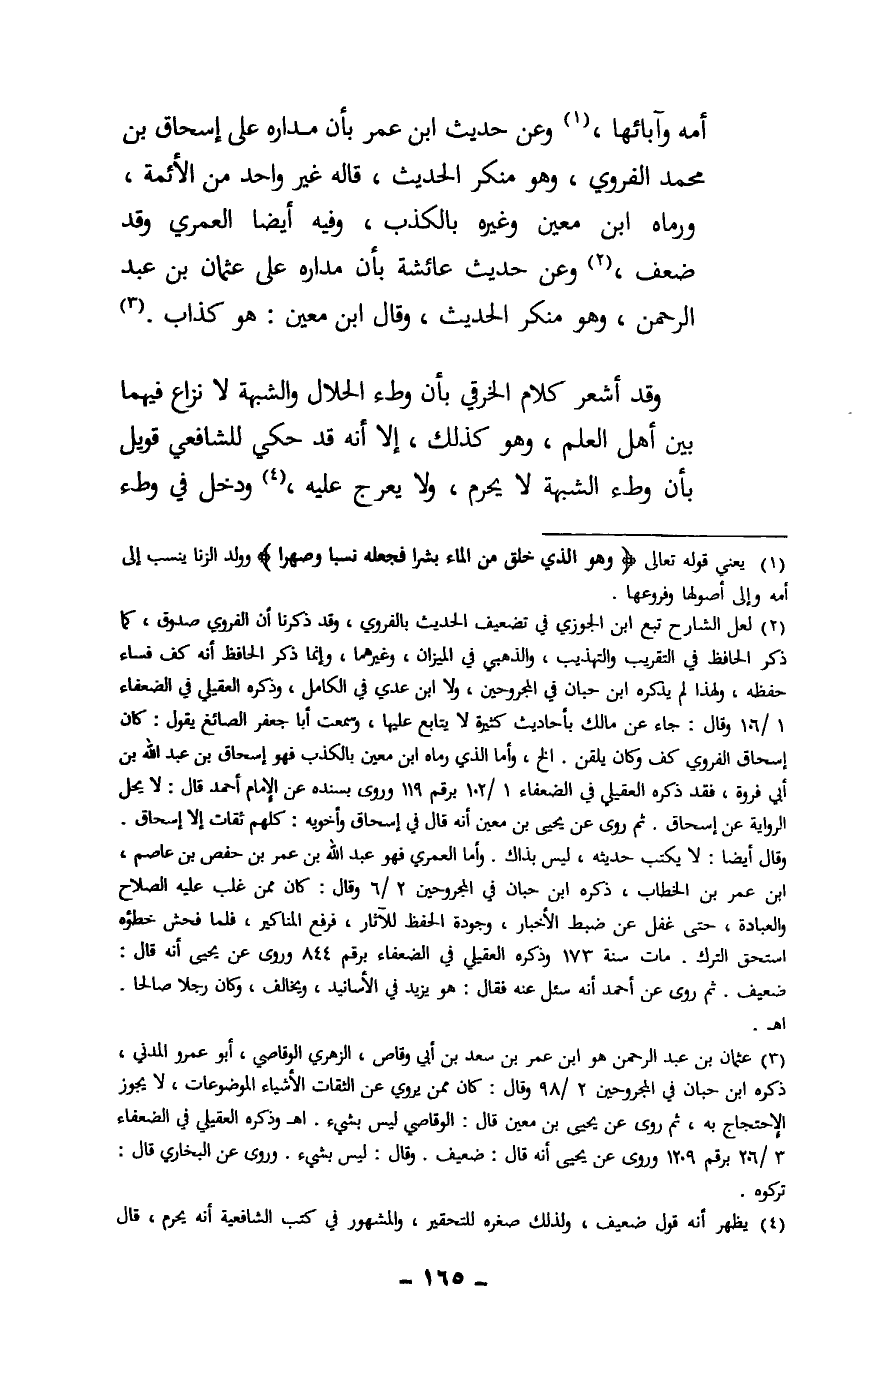 أمه وآبائها ،(١) وعن حديث ابن عمر بأن مداره على إسحاق بن
محمد الفروي ، وهو منكر الحديث ، قاله غير واحد من الأئمة ،
ورماه ابن معين وغيره بالكذب ، وفيه أيضا العمري وقد
ضعف ،(٢) وعن حديث عائشة بأن مداره على عثمان بن عبد
الرحمن ، وهو منكر الحديث ، وقال ابن معين : هو كذاب .(٣)
وقد أشعر كلام الخرقي بأن وطء الحلال والشبهة لا نزاع فيهما
بين أهل العلم ، وهو كذلك ، إلا أنه قد حكي للشافعي قويل
بأن وطء الشبهة لا يحرم ، ولا يعرج عليه ،(٤) ودخل في وطء
(١) يعني قوله تعالى ﴿ وهو الذي خلق من الماء بشرا فجعله نسبا وصهرا ﴾ وولد الزنا ينسب إلى
أمه وإلى أصولها وفروعها .
(٢) لعل الشارح تبع ابن الجوزي في تضعيف الحديث بالفروي ، وقد ذكرنا أن الفروي صدوق ، كما
ذكر الحافظ في التقريب والتهذيب ، والذهبي في الميزان ، وغيرهما ، وإنما ذكر الحافظ أنه كف فساء
حفظه ، ولهذا لم يذكره ابن حبان في المجروحين ، ولا ابن عدي في الكامل ، وذكره العقيلي في الضعفاء
١ /١٠٦ وقال : جاء عن مالك بأحاديث كثيرة لا يتابع عليها ، وسمعت أبا جعفر الصائغ يقول : كان
إسحاق الفروي كف وكان يلقن . الخ ، وأما الذي رماه ابن معين بالكذب فهو إسحاق بن عبد الله بن
أبي فروة ، فقد ذكره العقيلي في الضعفاء ١ /١٠٢ برقم ١١٩ وروى بسنده عن الإمام أحمد قال : لا يحل
الرواية عن إسحاق . ثم روى عن يحيى بن معين أنه قال في إسحاق وأخويه : كلهم ثقات إلا إسحاق .
وقال أيضا : لا يكتب حديثه ، ليس بذاك . وأما العمري فهو عبد الله بن عمر بن حفص بن عاصم ،
ابن عمر بن الخطاب ، ذكره ابن حبان في المجروحين ٢ /٦ وقال : كان ممن غلب عليه الصلاح
والعبادة ، حتى غفل عن ضبط الأخبار ، وجودة الحفظ للآثار ، فرفع المناكير ، فلما فحش خطؤه
استحق الترك . مات سنة ١٧٣ وذكره العقيلي في الضعفاء برقم ٨٤٤ وروى عن يحيى أنه قال :
ضعيف . ثم روى عن أحمد أنه سئل عنه فقال : هو يزيد في الأسانيد ، ويخالف ، وكان رجلا صالحا .
اهـ .
(٣) عثمان بن عبد الرحمن هو ابن عمر بن سعد بن أبي وقاص ، الزهري الوقاصي ، أبو عمرو المدني ،
ذكره ابن حبان في المجروحين ٢ /٩٨ وقال : كان ممن يروي عن الثقات الأشياء الموضوعات ، لا يجوز
الإحتجاج به ، ثم روى عن يحيى بن معين قال : الوقاصي ليس بشيء . اهـ وذكره العقيلي في الضعفاء
٣ /٢٠٦ برقم ١٢٠٩ وروى عن يحيى أنه قال : ضعيف . وقال : ليس بشيء . وروى عن البخاري قال :
تركوه .
(٤) يظهر أنه قول ضعيف ، ولذلك صغره للتحقير ، والمشهور في كتب الشافعية أنه يحرم ، قال
– ١٦٥ –